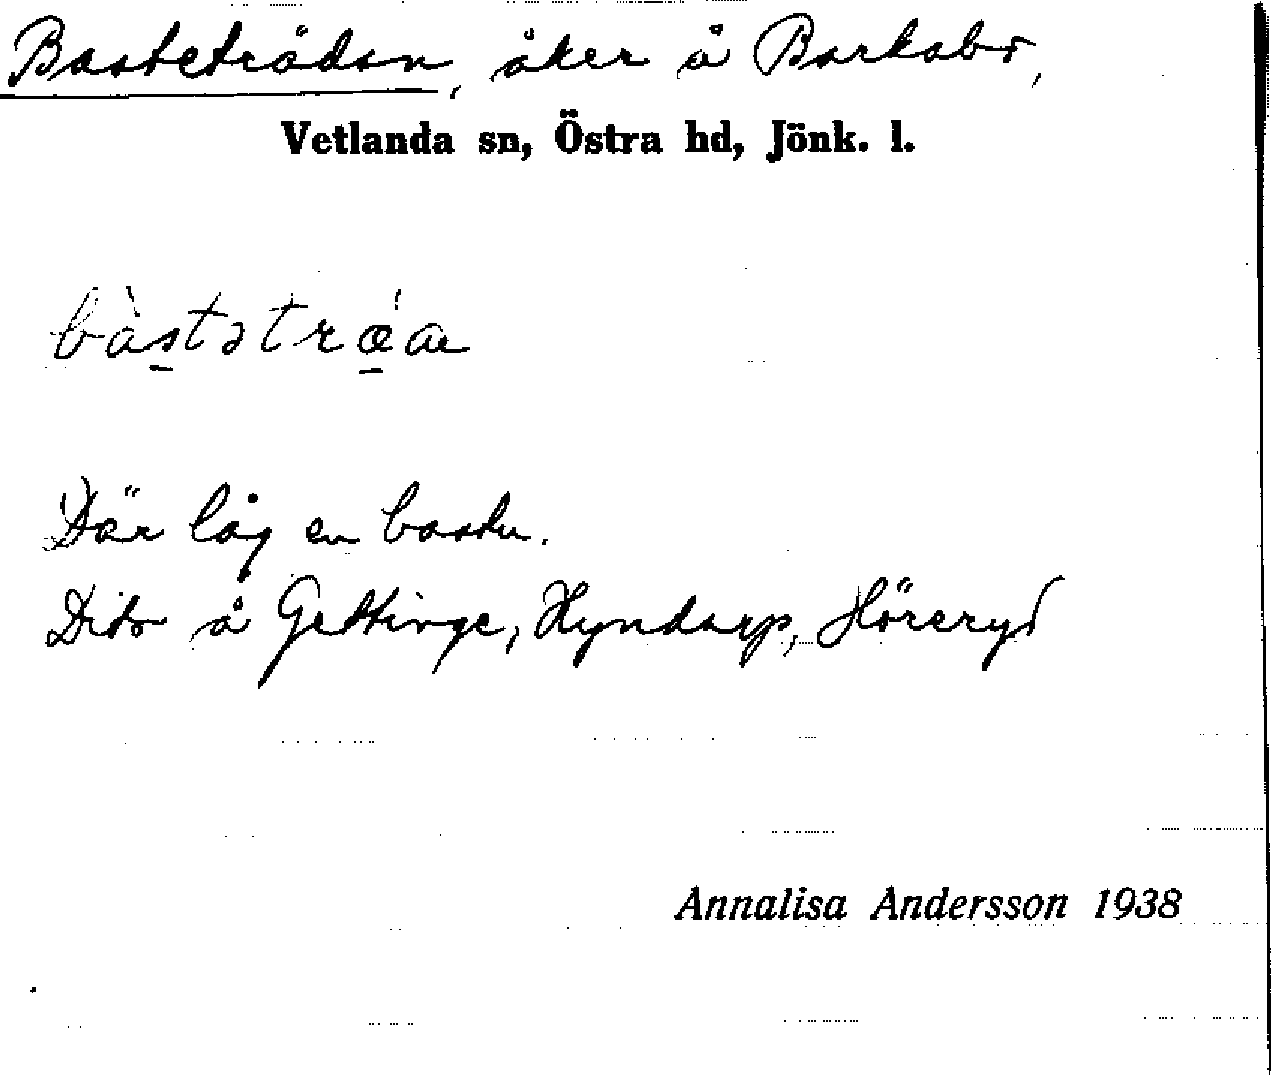 Basteträdan, åker å Barkabo,
Vetlanda sn, Östra hd, Jönk. l.
Där låg en bastu.
Dito å Gettinge, Hyndarp, Höreryd
Annalisa Andersson 1938